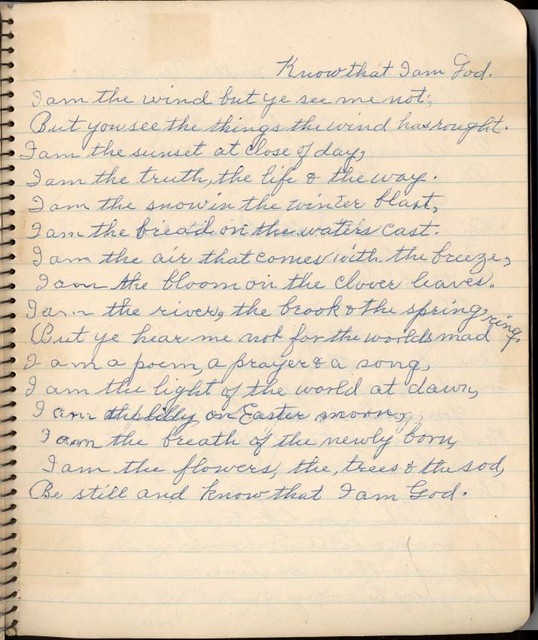 Know that I am God.
I am the wind but ye see me not,
But you see the things the wind has rought.
I am the sunset at close of day,
I am the truth, the life & the way.
I am the snow in the winter blast,
I am the bread on the waters cast.
I am the air that comes with the breeze,
I am the bloom on the clover leaves.
I am the river, the brook & the spring,
But ye hear me not for the worlds mad ring,
I am a poem, a prayer & a song,
I am the light of the world at dawn,
I am the lilly on Easter morn,
I am the breath of the newly born,
I am the flowers, the trees & the sod,
Be still and know that I am God.